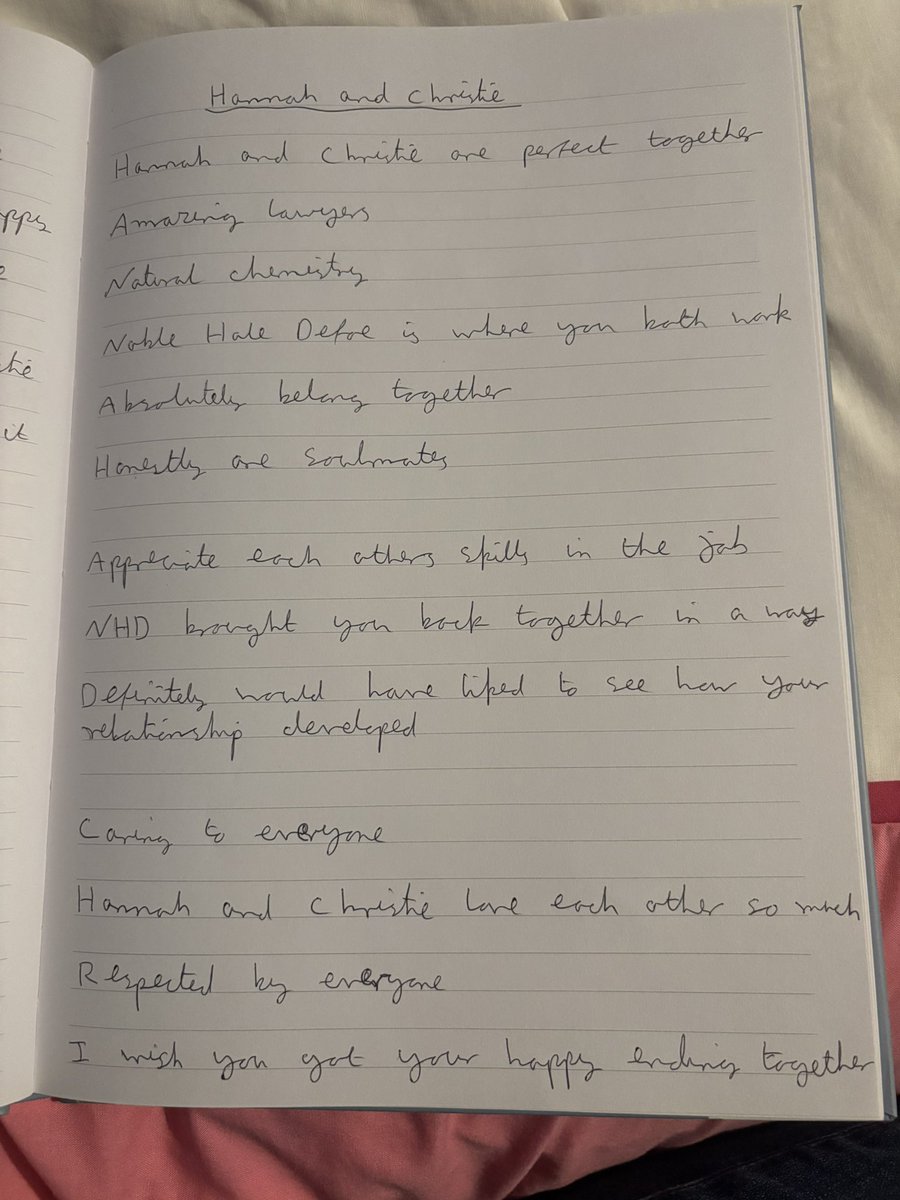 Hannah and Christie
Hannah and Christie are perfect together
Amazing lawyers
Natural chemistry
Noble Hale Defoe is where you both work
Absolutely belong together
Honestly are soulmates
Appreciate each others skills in the job
NHD brought you back together in a way
Definitely would have liked to see how your
relationship developed
Caring to everyone
Hannah and Christie love each other so much
Respected by everyone
I wish you got your happy ending together
ppy
it